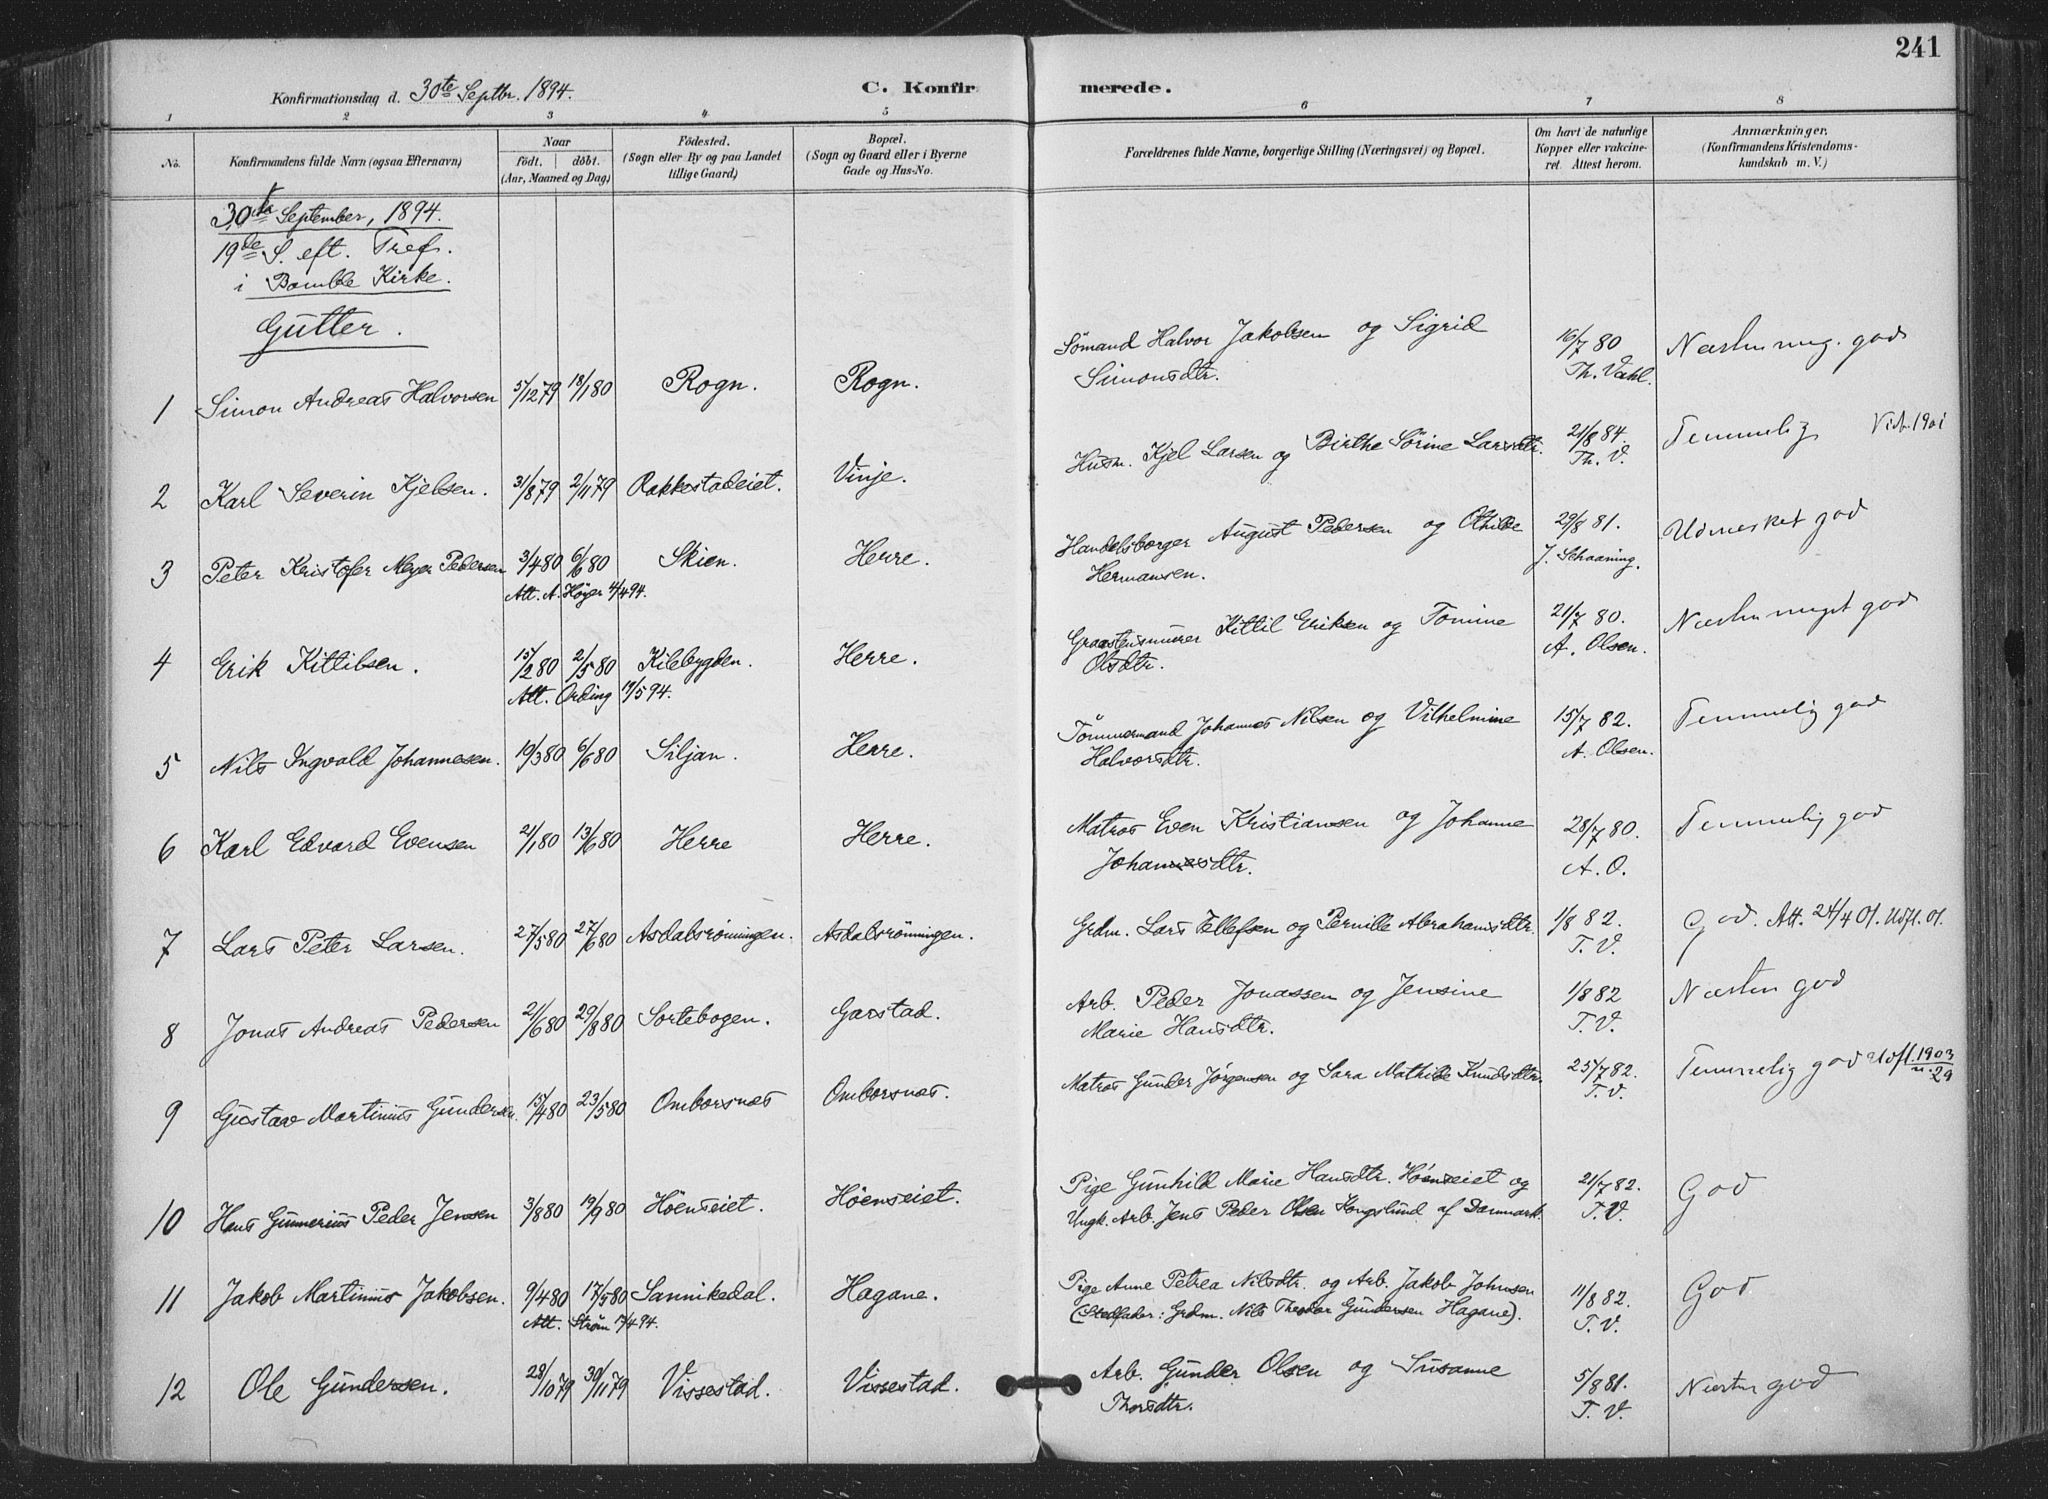 241
Konfirmationsdag d. 30te Septbr. 1894.
C. Konfirmerede.
1 2 3 4. 5 6 7 8
No. Konfirmandens fulde Navn (ogsaa Efternavn) Naar født. døbt. (Aar, Maaned og Dag) Födested. (Sogn eller By og paa Landet tillige Gaard) Bopæl. (Sogn og Gaard eller i Byerne Gade og Hus-No. Forældrenes fulde Navne, borgerlige Stilling (Næringsvei) og Bopæl. Om havt de naturlige Kopper eller vakcineret. Attest herom. Anmærkninger. (Konfirmandens Kristendomskundskab m. V.)
30te September, 1894.
19de S. eft. Tref.
i Bamble Kirke.
Gutter.
1 Simon Andreas Halvorsen 5/12 79 18/1 80 Rogn. Rogn. Sømand Halvor Jakobsen og Sigrid 16/7 80 Næsten meg. god
Simonsdtr. Th. Vahl.
2 Karl Severin Kjelsen. 31/8 79 2/11 79 Rakkestadeiet. Vinje. Husm. Kjel Larsen og Birthe Sørine Larsdtr. 21/8 84. Temmelig Vidn. 1901
Th. V.
3 Peter Kristofer Meyer Pedersen 3/4 80 6/6 80 Skien. Herre. Handelsborger August Pedersen og Othilde 29/8 81. Udmerket god
Att. A. Höyer 4/4 94. Hermansen. J. Schaaning.
4 Erik Kittilsen. 15/2 80 2/5 80 Kilebygden. Herre. Graastensmurer Kittil Eriksen og Tomine 21/7 80. Næsten meget god
Att. Ording 19/5 94. Olsdtr. A. Olsen.
5 Nils Ingvald Johannesen. 19/3 80 6/6 80 Siljan. Herre. Tömmermand Johannes Nilsen og Vilhelmine 15/7 82. Temmelig god
Halvorsdtr. A. Olsen.
6 Karl Edvard Evensen 21/1 80 13/6 80 Herre Herre. Matros Even Kristiansen og Johanne 28/7 80. Temmelig god
Johannesdtr. A. O.
7 Lars Peter Larsen. 27/5 80 27/6 80 Asdalsrönningen. Asdalsrönningen. Grdm. Lars Tellefsen og Pernille Abrahamsdtr. 1/8 82. God. Att. 24/4 01. Udfl. 01.
T. V.
8 Jonas Andreas Pedersen 21/6 80 29/8 80 Sortebogen. Garstad. Arb. Peder Jonassen og Jensine 1/8 82 Næsten god
Marie Hansdtr. T. V.
9 Gustav Martinius Gundersen. 15/4 80 23/5 80 Omborsnæs Omborsnæs. Matros Gunder Jørgensen og Sara Mathilde Knudsdtr. 25/7 82. Temmelig god Udfl. 1903
T. V.
10 Hans Gunnerius Peder Jensen 3/8 80 19/9 80 Höenseiet. Höenseiet. Pige Gunhild Marie Hansdtr. Höenseiet og 21/7 82. God
Ungk. Arb. Jens Peder Olsen Kongslund af Danmark. T. V.
11 Jakob Martinius Jakobsen. 9/4 80 17/5 80 Sannikedal. Hagane. Pige Anne Petrea Nilsdtr. og Arb. Jakob Johnsen 11/8 82. God
Att. Ström 17/4 94. (Stedfader: Grdm. Nils Theodor Gundersen Hagane). T. V.
12 Ole Gundersen. 28/10 79 30/11 79 Vissestad. Vissestad. Arb. Gunder Olsen og Susanne 5/8 81. Næsten god
Thorsdtr. T. V.